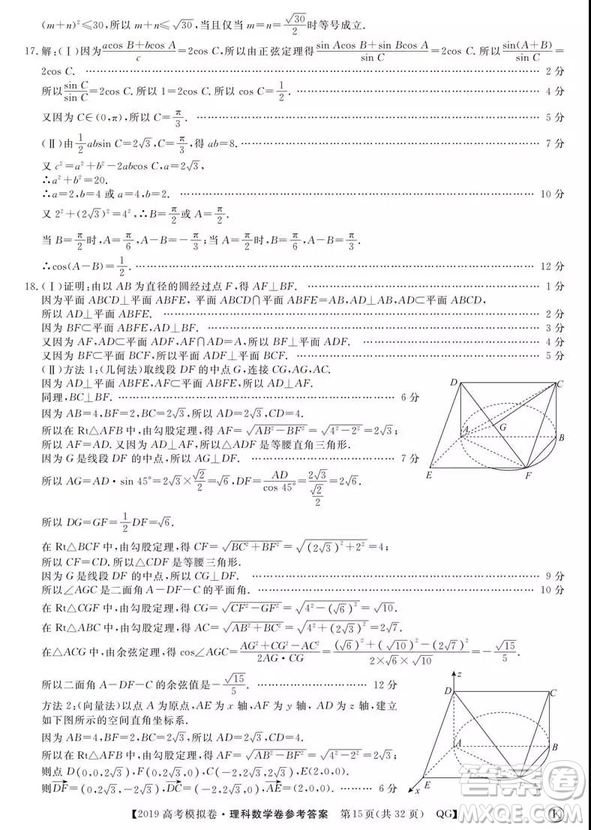 (m+n)²≤30,所以 m+n≤√30,当且仅当 m=n=√30/2 时等号成立.
17.解:(Ⅰ)因为(acos B+bcos A)/c=2cos C,所以由正弦定理得(sin Acos B+sin Bcos A)/sin C=2cos C.所以sin(A+B)/sin C=
2cos C. 2分
所以sin C/sin C=2cos C.所以 1=2cos C.所以 cos C=1/2. 4分
又因为 C∈(0,π),所以 C=π/3. 5分
(Ⅱ)由1/2 absin C=2√3,C=π/3,得 ab=8.
又 c²=a²+b²-2abcos C,
∴a²+b²=20.
∴a=2,b=4 或 a=4,b=2. 10分
又 2²+(2√3)²=4²,∴B=π/2 或 A=π/2.
当 B=π/2时,A=π/6,A-B=-π/3;当 A=π/2时,B=π/6,A-B=π/3.
∴cos(A-B)=1/2. 12分
18.(Ⅰ)证明:由以 AB 为直径的圆经过点 F,得 AF⊥BF. 1分
因为平面 ABCD⊥平面 ABFE,平面 ABCD∩平面 ABFE=AB,AD⊥AB,
所以 AD⊥平面 ABFE. 2分
因为 BF⊂平面 ABFE,所以 AD⊥BF. 3分
又因为 AF,AD⊂平面 ADF,AF∩AD=A,所以 BF⊥平面 ADF. 4分
又因为 BF⊂平面 BCF,所以平面 ADF⊥平面 BCF. 5分
(Ⅱ)方法 1:(几何法)取线段 DF 的中点 G,连接 CG,AG,AC.
因为 AD⊥平面 ABFE,所以 AD⊥AF.
同理,BC⊥BF. 6分
因为 AB=4,BF=2,BC=2√3,所以 AD=2√3,CD=4.
所以在 Rt△AFB 中,由勾股定理,得 AF=√(AB²-BF²)=√(4²-2²)=2√3;
所以 AF=AD.又因为 AD⊥AF,所以△ADF 是等腰直角三角形.
因为 G 是线段 DF 的中点,所以 AG⊥DF. 7分
所以 AG=AD·sin 45°=2√3×√2/2=√6,DF=AD/cos 45°=2√3/(√2/2)=2√6.
所以 DG=GF=1/2 DF=√6.
在 Rt△BCF 中,由勾股定理,得 CF=√(BC²+BF²)=√((2√3)²+2²)=4;
所以 CF=CD.
因为 G 是线段 DF 的中点,所以 CG⊥DF. 9分
所以∠AGC 是二面角 A-DF-C 的平面角. 10分
在 Rt△CGF 中,由勾股定理,得 CG=√(CF²-GF²)=√(4²-(√6)²)=√10.
在 Rt△ABC 中,由勾股定理,得 AC=√(AB²+BC²)=√(4²+(2√3)²)=2√7.
在△ACG 中,由余弦定理,得 cos∠AGC=(AG²+CG²-AC²)/(2AG·CG)=((√6)²+(√10)²-(2√7)²)/(2×√6×√10)=-√15/5.
所以二面角 A-DF-C 的余弦值是-√15/5. 12分
方法 2:(向量法)以点 A 为原点,AE 为 x 轴,AB 为 y 轴,AD 为 z 轴,建立
如下图所示的空间直角坐标系.
因为 AB=4,BF=2,BC=2√3,所以 AD=2√3,CD=4.
所以在 Rt△AFB 中,由勾股定理,得 AF=√(AB²-BF²)=√(4²-2²)=2√3;
则点 D(0,0,2√3),
则 6分
【2019 高考模拟卷·理科数学卷参考答案 第15页(共 32 页) QG】